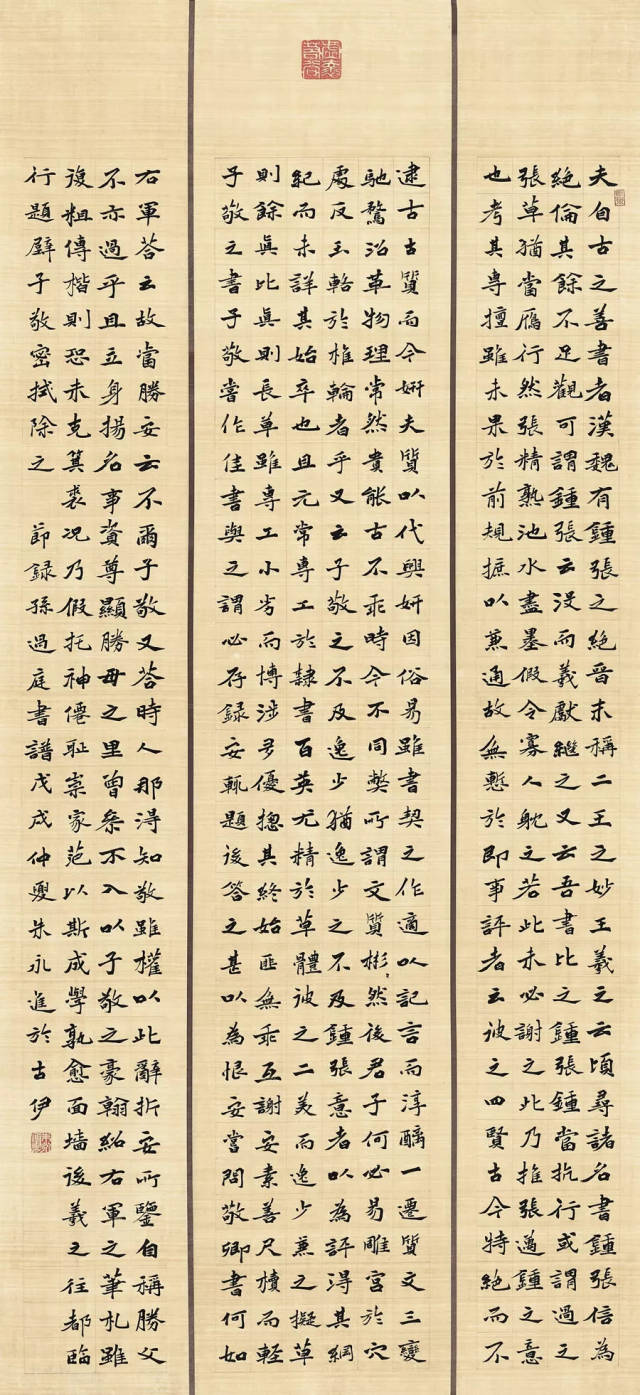 虛懷若谷
夫自古之善書者漢魏有鍾張之絕晉末稱二王之妙王羲之云頃尋諸名書鍾張信為
絕倫其餘不足觀可謂鍾張云沒而羲獻繼之又云吾書比之鍾張鍾當抗行或謂過之
張草猶當雁行然張精熟池水盡墨假令寡人耽之若此未必謝之此乃推張邁鍾之意
也考其專擅雖未果於前規摭以兼通故無慙於即事評者云彼之四賢古今特絕而不
逮古古質而今妍夫質以代興妍因俗易雖書契之作適以記言而淳醨一遷質文三變
馳騖沿革物理常然貴能古不乖時今不同弊所謂文質彬彬然後君子何必易雕宮於穴
處反玉輅於椎輪者乎又云子敬之不及逸少猶逸少之不及鍾張意者以為評得其綱
紀而未詳其始卒也且元常專工於隸書百英尤精於草體彼之二美而逸少兼之擬草
則餘真比真則長草雖專工小劣而博涉多優摠其終始匪無乖互謝安素善尺牘而輕
子敬之書子敬嘗作佳書與之謂必存錄安輒題後答之甚以為恨安嘗問敬卿書何如
右軍答云故當勝安云不爾子敬又答時人那得知敬雖權以此辭折安所鑒自稱勝父
不亦過乎且立身揚名事資尊顯勝母之里曾參不入以子敬之豪翰紹右軍之筆札雖
復粗傳楷則恐未克箕裘況乃假托神僊恥崇家范以斯成學孰愈面墻後羲之往都臨
行題壁子敬密拭除之 節錄孫過庭書譜戊戌仲夏朱永進於古伊